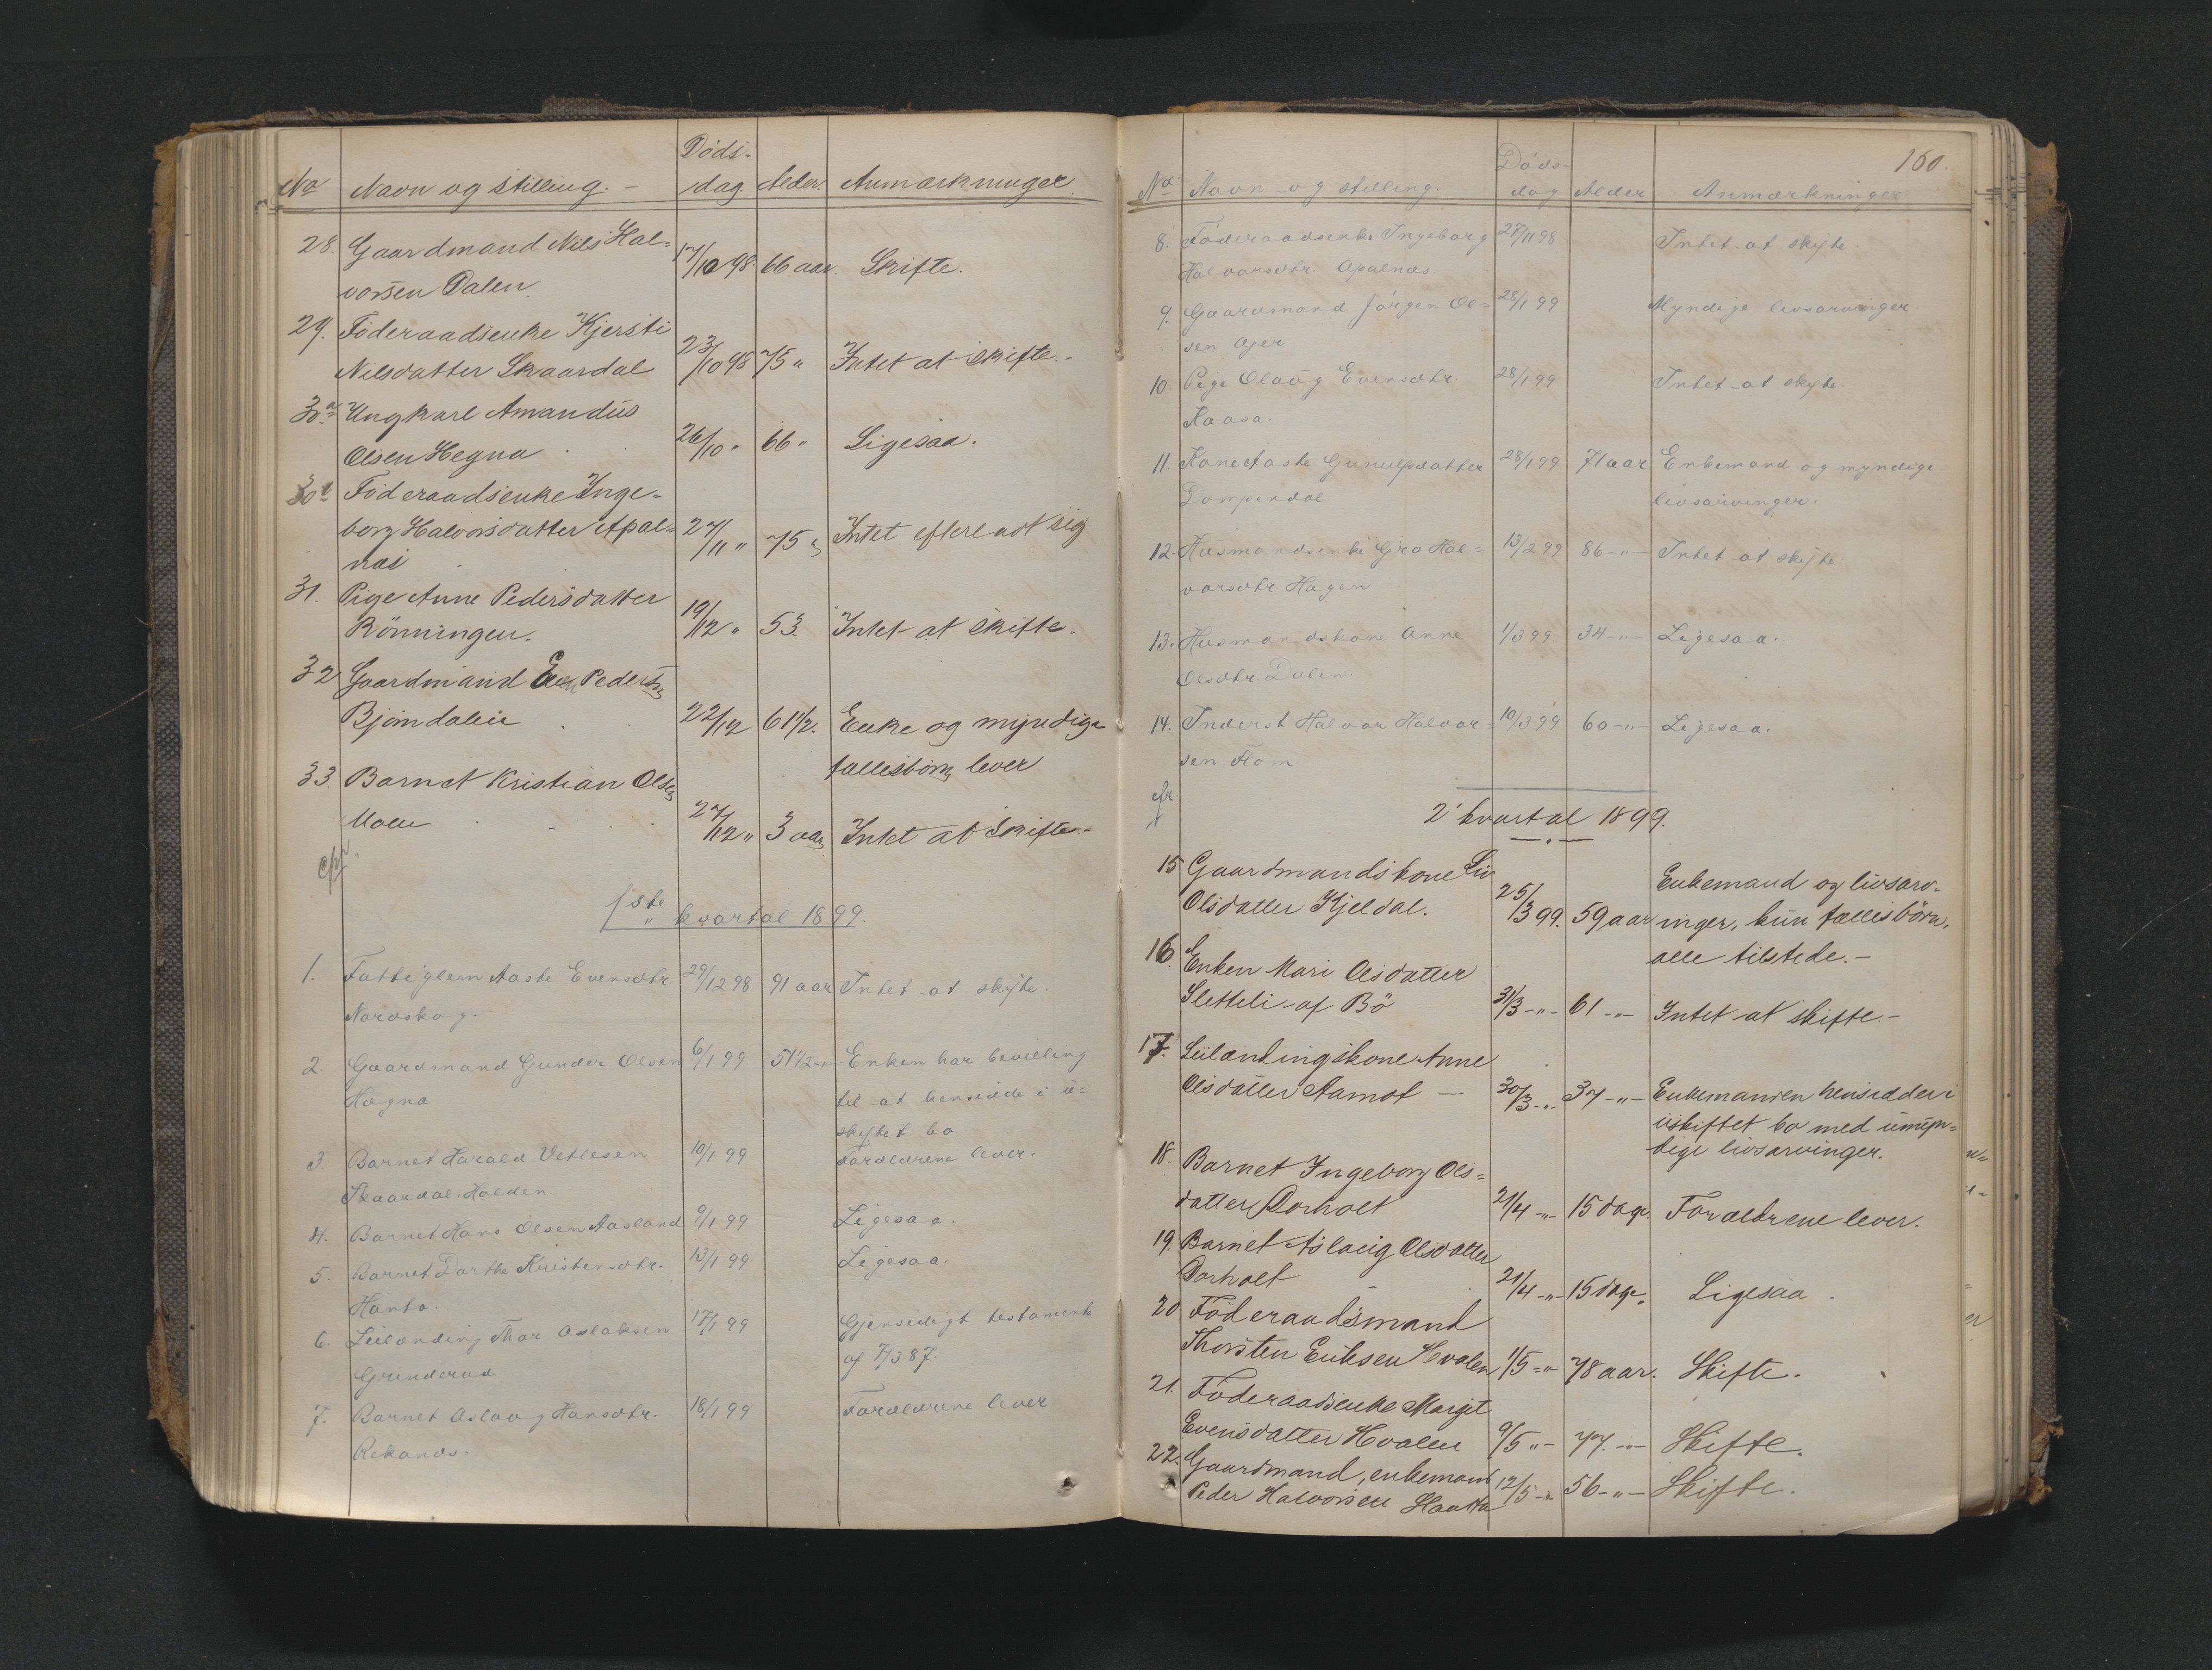 Døds-
No Navn og stilling. - dag Alder. Anmærkninger.
28. Gaardmand Nils Hal-
vorsen Dalen 17/10 98. 66 aar. Skifte.
29. Føderaadsenke Kjersti
Nilsdatter Skaardal 23/10 98 75 " Intet at skifte.-
30a Ungkarl Amandus
Olsen Hegna 26/10 " 66 " Ligesaa.
30b Føderaadsenke Inge-
borg Halvorsdatter Apal-
næs 27/11 " 75 " Intet efterladt sig
31. Pige Anne Pedersdatter
Rönningen. 19/12 " 53. Intet at skifte.
32 Gaardmand Even Pedersen
Bjørndalen 22/12 61 1/2. Enke og myndige
fællesbørn lever
33. Barnet Kristian Olsen
Moen 27/12 " 3 aar Intet at skifte.-
1ste kvartal 1899.
1. Fattiglem Aaste Evensdtr. 29/12 98 91 aar Intet at skifte.
Nordskog.
2. Gaardmand Gunder Olsen 6/1 99 51 1/2 -"- Enken har bevilling
Hægna til at hensidde i u-
skiftet bo
3. Barnet Harald Vetlesen 10/1 99 Forældrene lever.
Skaardal, Holden
4. Barnet Hans Olsen Aasland 9/1 99 Ligesaa.
5. Barnet Dorthe Kristensdtr. 13/1 99 Ligesaa.
Hanto.
6. Leilænding Thor Aslaksen 17/1 99 Gjensidigt testamente
Grinderud af 7/3 87.
7. Barnet Aslaug Hansdtr. 18/1 99 Forældrene lever
Rekanes.
160.
Døds-
No Navn og stilling. dag Alder Anmærkninger
8. Føderaadsenke Ingeborg 27/11 98 Intet at skifte.
Halvorsdtr. Apalnæs.
9. Gaardmand Jörgen Ol- 28/1 99 Myndige livsarvinger
sen Ajer
10. Pige Olaug Evensdtr. 28/1 99 Intet at skifte.
Kaasa.
11. Kone Aaste Gunulfsdatter 28/1 99 71 aar Enkemand og myndige
Lompendal livsarvinger.
12. Husmandsenke Gro Hal- 13/2 99 86 -"- Intet at skifte.
vorsdtr Hagen
13. Husmandskone Anne 1/3 99 34 -"- Ligesaa.
Olsdtr. Dalen.
14. Inderst Halvor Halvor- 10/3 99 60 -"- Ligesaa.
sen Hom
cfr
2' kvartal 1899.
15 Gaardmandskone Liv
Olsdatter Kjeldal. 25/3 99. 59 aar Enkemand og livsarv-
inger, kun fællesbörn,
alle tilstede.-
16. Enken Mari Olsdatter
Sletteli af Bö 31/3 -"- 61 -"- Intet at skifte.-
17. Leilændingskone Anne
Olsdatter Aamot - 30/3 -"- 37 -"- Enkemanden hensidder i
uskiftet bo med umyn-
dige livsarvinger.
18. Barnet Ingeborg Ols-
datter Dorholt 21/4 -"- 15 dage. Forældrene lever.
19. Barnet Aslaug Olsdatter
Dorholt 21/4 -"- 15 dage. Ligesaa.
20 Föderaadsmand
Thorsten Eriksen Hvalen 1/5 -"- 78 aar. Skifte.
21. Föderaadsenke Margit
Evensdatter Hvalen 9/5 "- 77. -"- Skifte.
22. Gaardmand, enkemand
Peder Halvorsen Haatta 12/5 -"- 56 -"- Skifte.